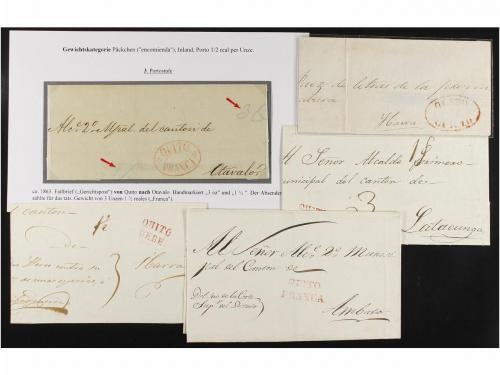 Gewichtskategorie Päckchen ("encomienda"), Inland, Porto 1/2 real per Unze.
3. Portostufe
Alce. 2º Mpal. del canton de
QUITO
FRANCA
Otavalo
ca. 1863. Faltbrief („Gerichtspost") von Quito nach Otavalo. Handmarkiert „3 oz" und „1 ½ ". Der Absender
zahlte für das tats. Gewicht von 3 Unzen 1 ½ reales („Franca").
Juez de letras de la
Ibarra
Al Señor Alcalde Primero
municipal del canton de
3
Latacunga
canton
de
1½
QUITO
DEBE
3
Ibarra
Al Señor Alce. 2º Munici
pal del Canton de
QUITO
FRANCA
Ambato